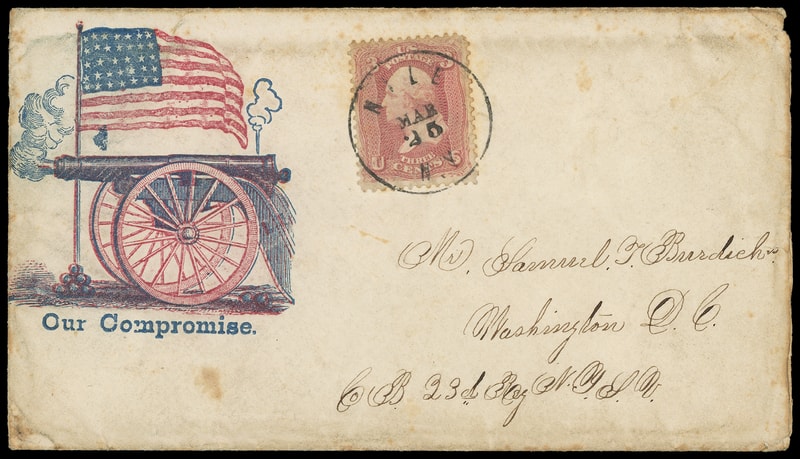 Our Compromise.
U.S. POSTAGE
THREE CENTS
NILE
MAR
25
N.Y.
Mr. Samuel. T. Burdick
Washington D. C.
Co B. 23d Reg N. Y. S. V.